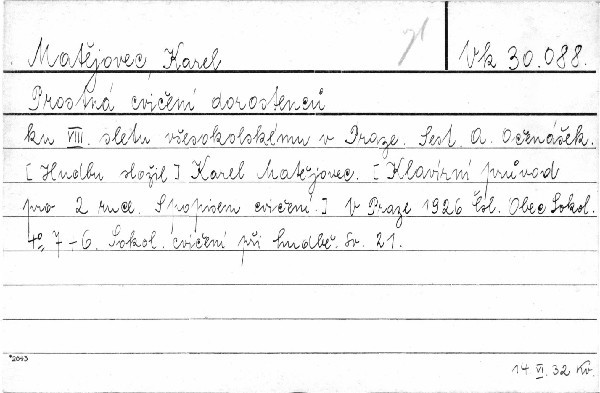 Matějovec, Karel
Vk 30.088.
Prostná cvičení dorostenců
ku VIII. sletu všesokolskému v Praze. Sest. A. Očenášek.
[Hudbu složil] Karel Matějovec. [Klavírní průvod
pro 2 ruce. S popisem cvičení.] V Praze 1926 Čsl. Obec Sokol.
4° 7-6. Sokol. cvičení při hudbě. Sv. 21.
*2043
14 VI. 32 Kv.